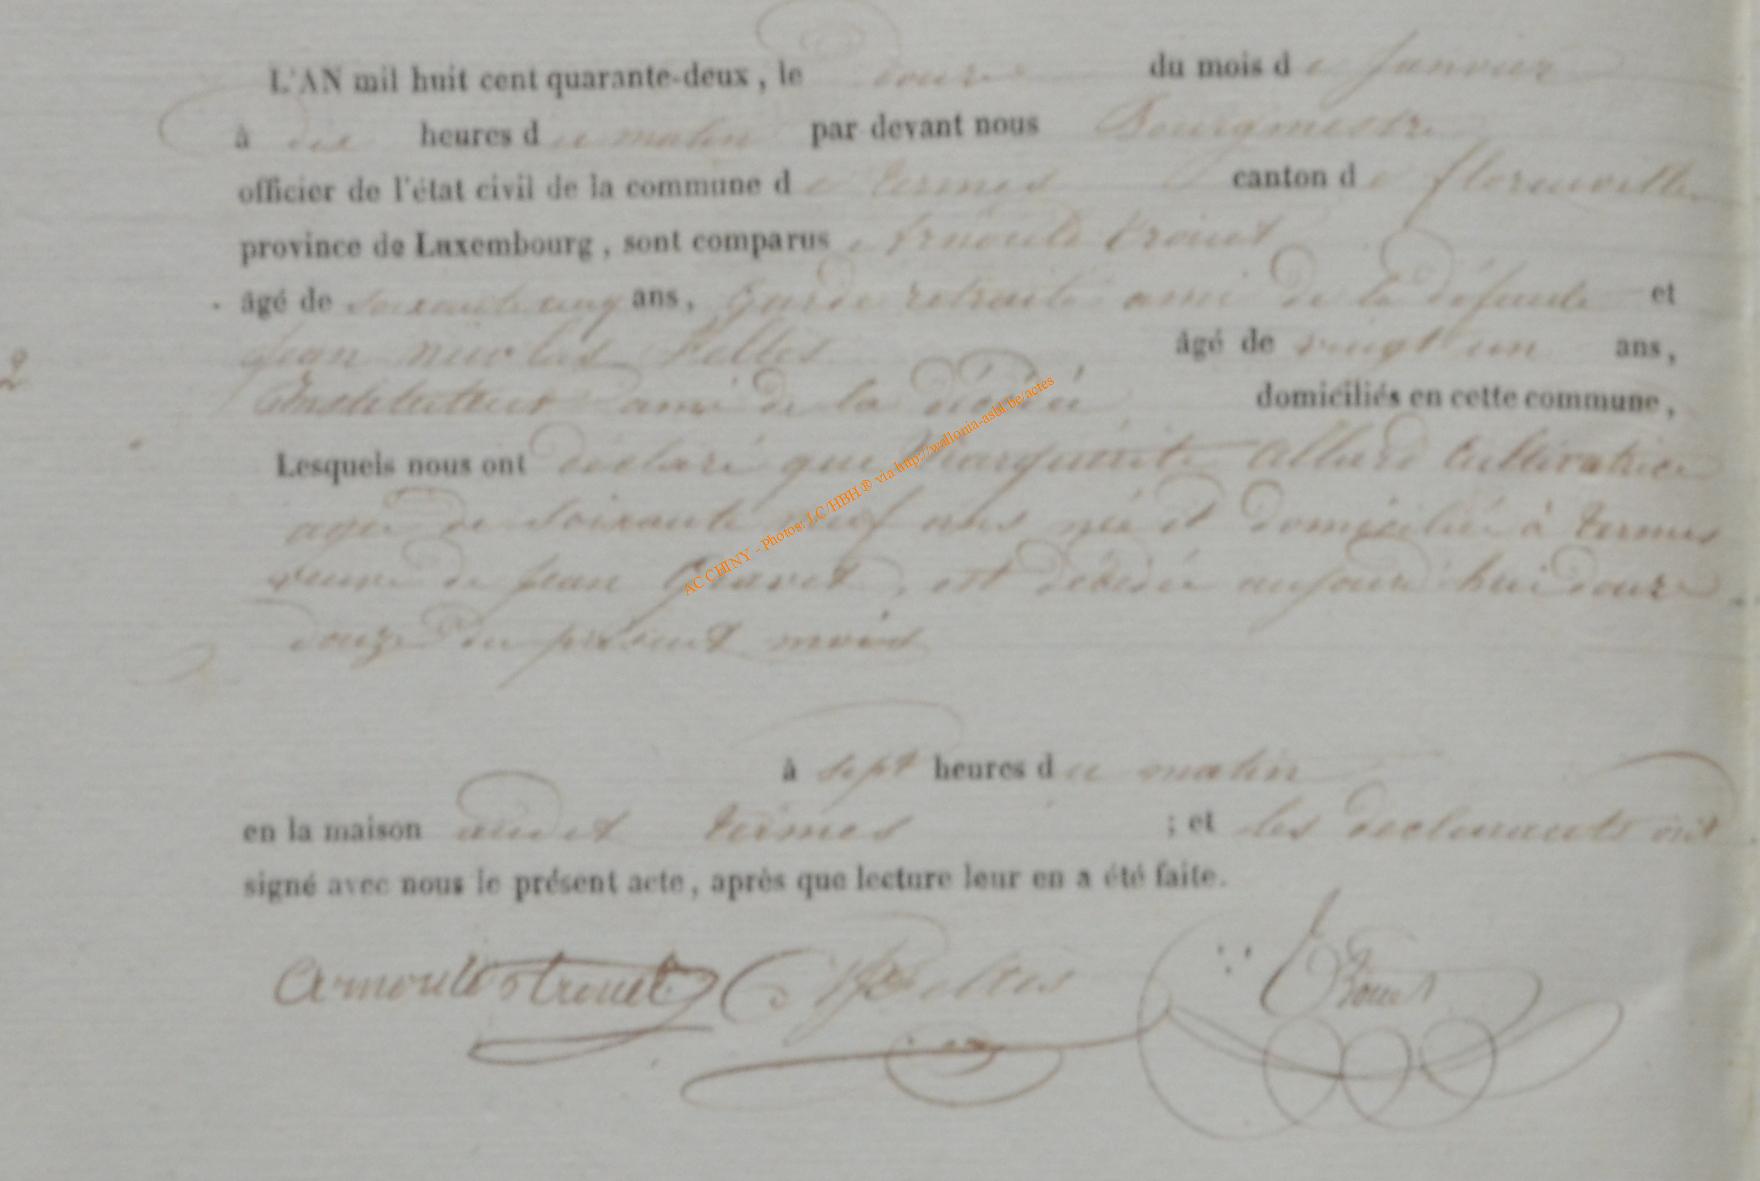 L'AN mil huit cent quarante-deux, le douze du mois de Janvier
à dix heures du matin par devant nous Bourgmestre
officier de l'état civil de la commune de termes canton de florenville
province de Luxembourg, sont comparus Arnould trouet
âgé de soixante cinq ans, Garde retraité ami de la défunte et
Jean nicolas Peltes âgé de vingt un ans,
Instituteur ami de la décédée domiciliés en cette commune,
Lesquels nous ont déclaré que Marguerite Allard Cultivatrice
agée de soixante neuf ans née et domiciliée à termes
veuve de Jean Gravet, est décédée aujourd'hui douze
douze du présent mois
à sept heures du matin
en la maison termes ; et les declarants ont
signé avec nous le présent acte, après que lecture leur en a été faite.
Arnould trouet Peltes
2
AC CHINY - Photos: J.C/HBH ® via http://wallonia-asbl.be/actes